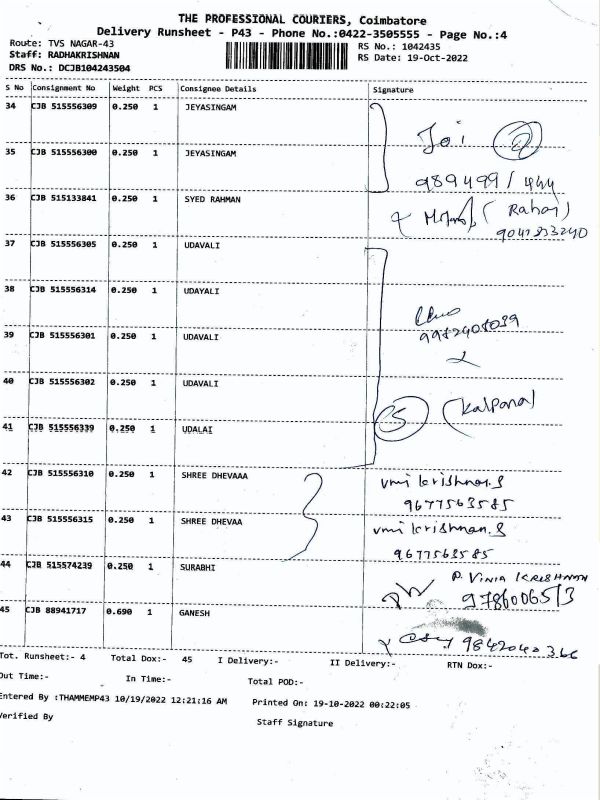 THE PROFESSIONAL COURIERS, Coimbatore
Delivery Runsheet - P43 - Phone No.:0422-3505555 - Page No.:4
Route: TVS NAGAR-43
RS No.: 1042435
Staff: RADHAKRISHNAN
RS Date: 19-Oct-2022
DRS No.: DCJB104243504
S No Consignment No Weight PCS Consignee Details Signature
34 CJB 515556309 0.250 1 JEYASINGAM
Joi 2
35 CJB 515556300 0.250 1 JEYASINGAM
989499/444
36 CJB 515133841 0.250 1 SYED RAHMAN
(Rahai)
37 CJB 515556305 0.250 1 UDAVALI
38 CJB 515556314 0.250 1 UDAYALI
39 CJB 515556301 0.250 1 UDAVALI
40 CJB 515556302 0.250 1 UDAVALI
5 (Kalpana)
41 CJB 515556339 0.250 1 UDALAI
42 CJB 515556310 0.250 1 SHREE DHEVAAA
vmi krishnan.S
9677563585
43 CJB 515556315 0.250 1 SHREE DHEVAA
vmi krishnan.S
9677563585
44 CJB 515574239 0.250 1 SURABHI
P. VINIA KRISHNAN
45 CJB 88941717 0.690 1 GANESH
9842040366
Tot. Runsheet:- 4 Total Dox:- 45 I Delivery:- II Delivery:- RTN Dox:-
Out Time:- In Time:- Total POD:-
Entered By :THAMMEMP43 10/19/2022 12:21:16 AM Printed On: 19-10-2022 00:22:05
Verified By Staff Signature